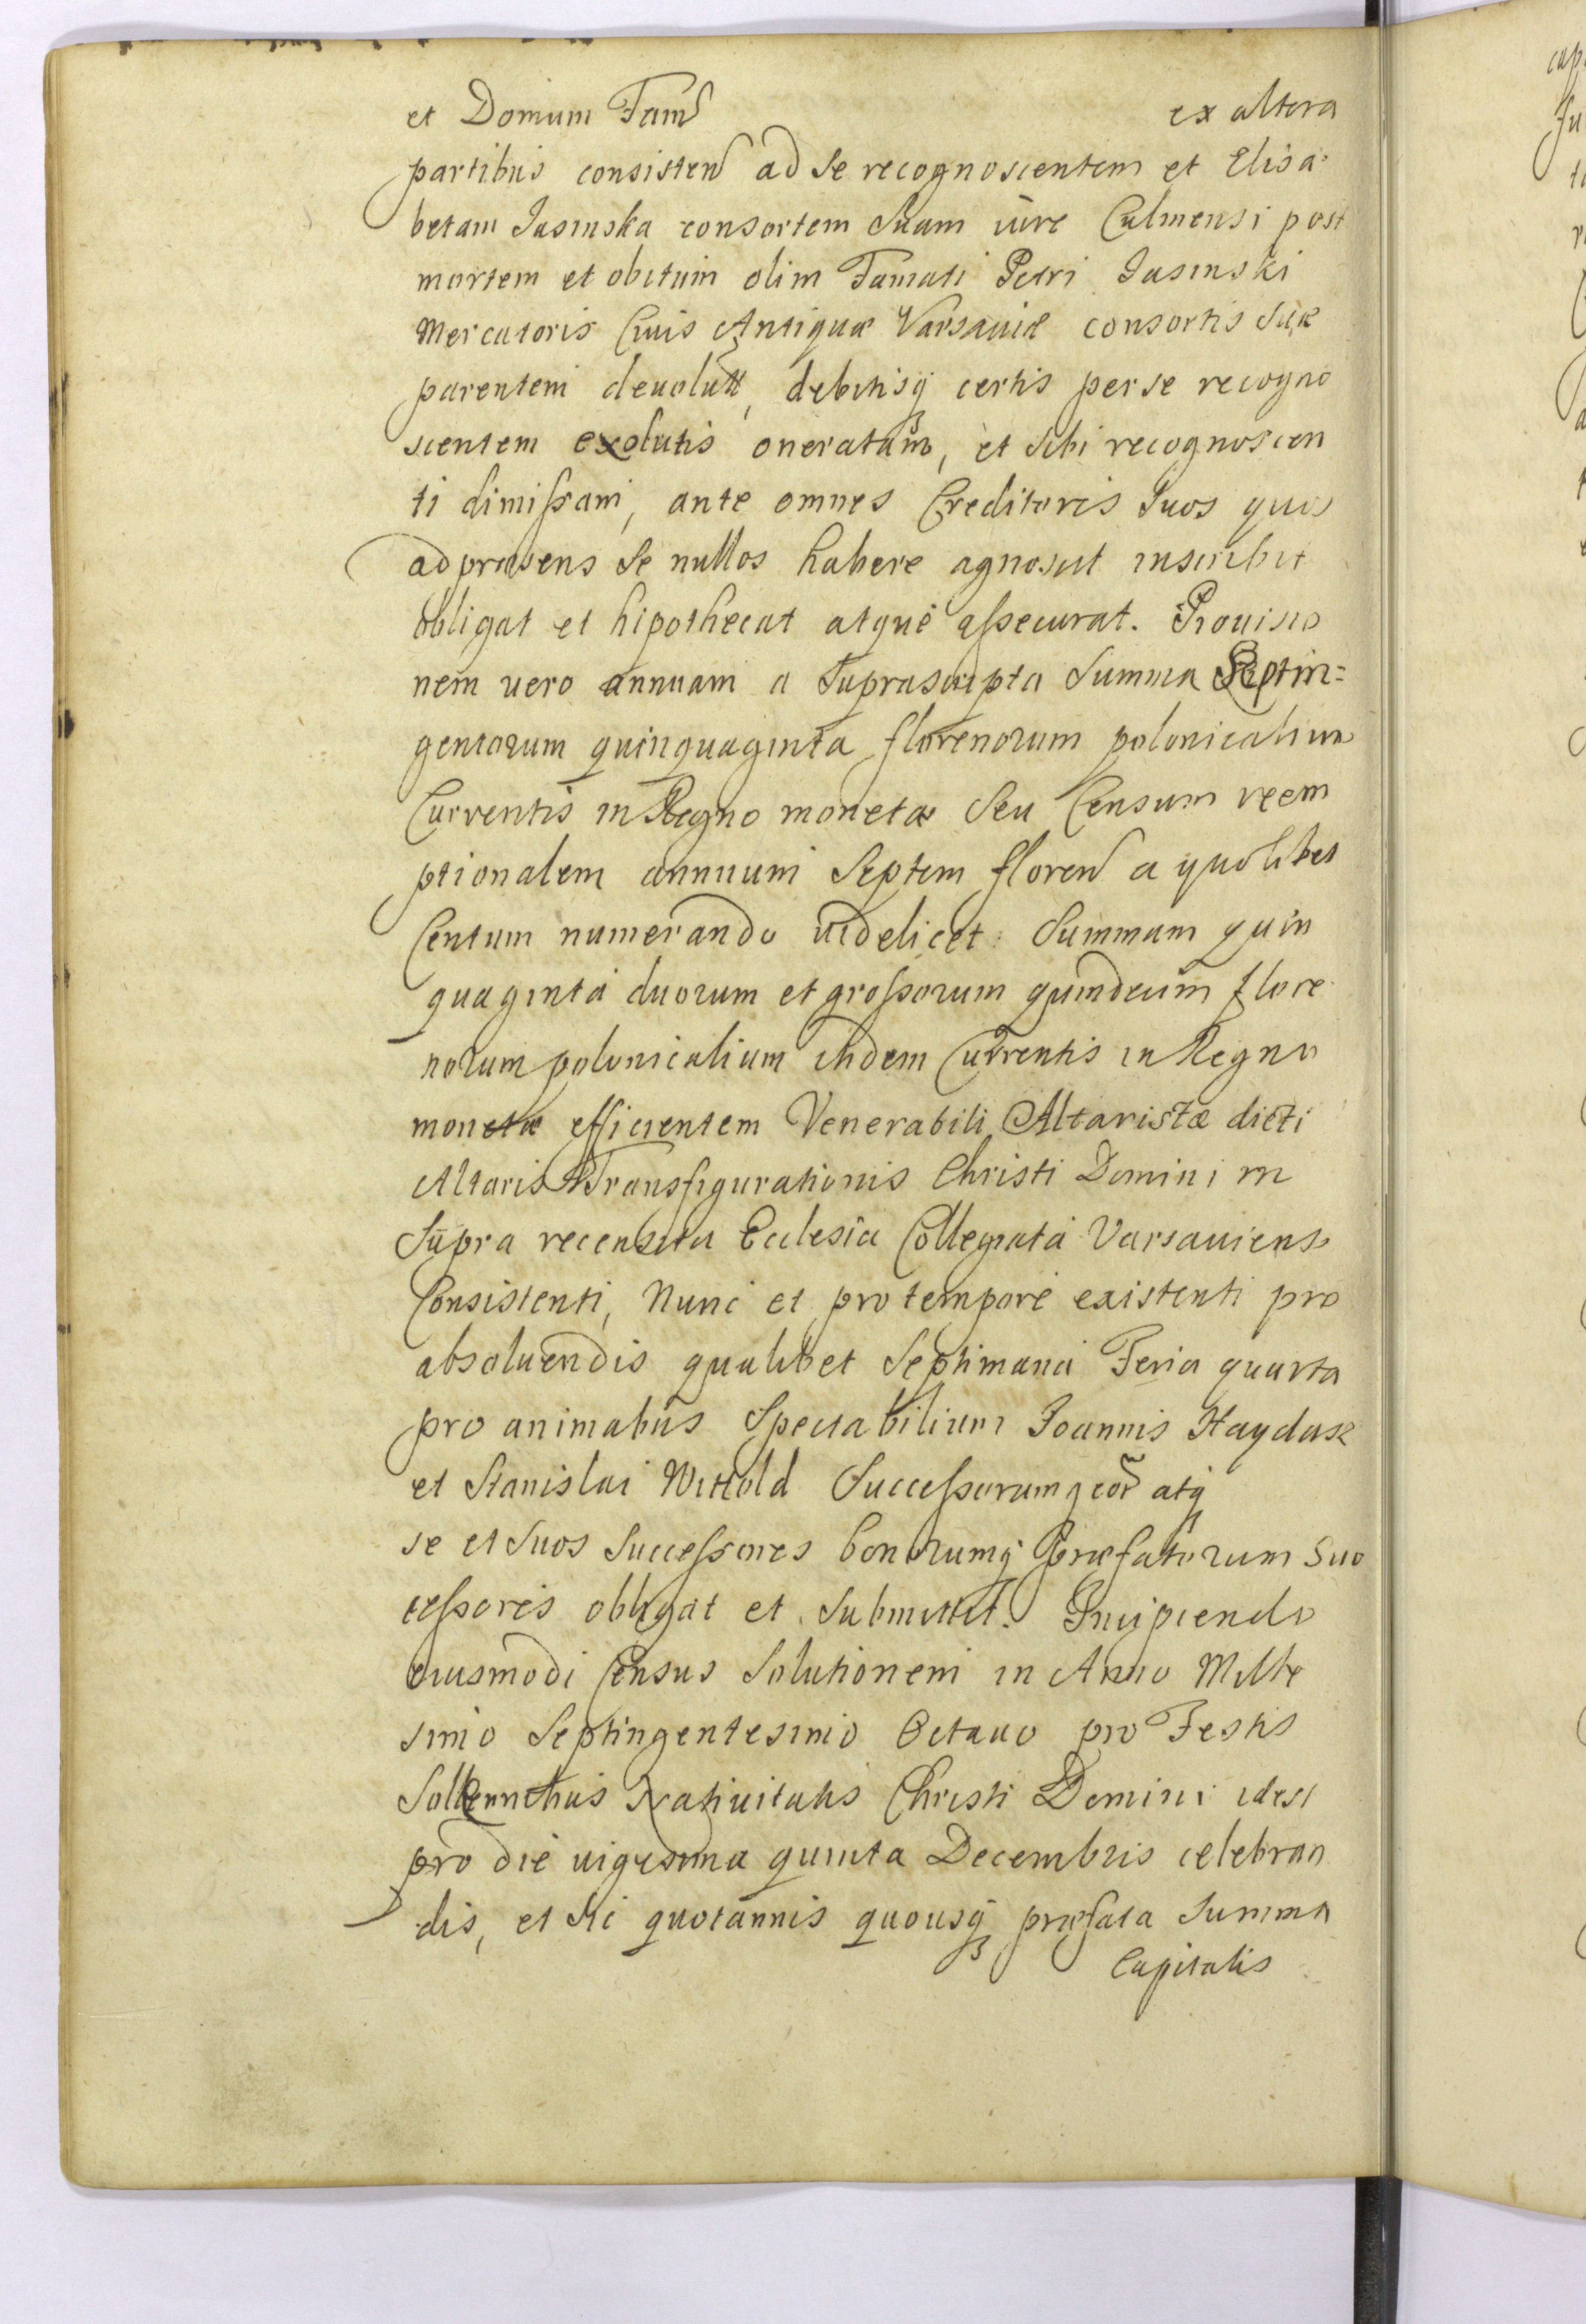 et Domum Fam ex altera
partibus consisten ad se recognoscentem et Elisa:
betam Jasinska consortem Suam iure Culmensi post
mortem et obitum olim Famati Petri Jasinski
Mercatoris Ciuis Antiquæ Varsauiæ consortis Suæ
parentem deuolutt, debitisq certis per se recogno
scentem exolutis oneratam, et Sibi recognoscen
ti dimissam, ante omnes Creditores Suos quos
ad præsens Se nullos habere agnoscit inscribit
obligat et hipothecat atque assecurat. Prouisio
nem uero annuam a Suprascripta Summa Septin=
gentorum quinquaginta florenorum polonicalium
Currentis in Regno monetæ Seu Censum reem
ptionalem annuum Septem floren a quolibet
Centum numerando uidelicet: Summam quin
quaginta duorum et grossorum quindecim flore
norum polonicalium itidem Currentis in Regno
monetæ efficientem Venerabili Altaristæ dicti
Altaris Transfigurationis Christi Domini in
Supra recensita Ecclesia Collegiata Varsauiens
Consistenti, Nunc et pro tempore existenti pro
absoluendis qualibet Septimana Feria quarta
pro animabus Spectabilium Joannis Haydasz
et Stanislai Wittold Successorumq eor atq
se et Suos Successores bonorumq Præfatorum Suc
cessores obligat et Submittit. Incipiendo
eiusmodi Census Solutionem in Anno Mille
simo Septingentesimo Octauo pro Festis
Sollennibus Natiuitatis Christi Domini idest
pro die uigesima quinta Decembris celebran
dis, et Sic quotannis quousq præfata Summa
Capitalis